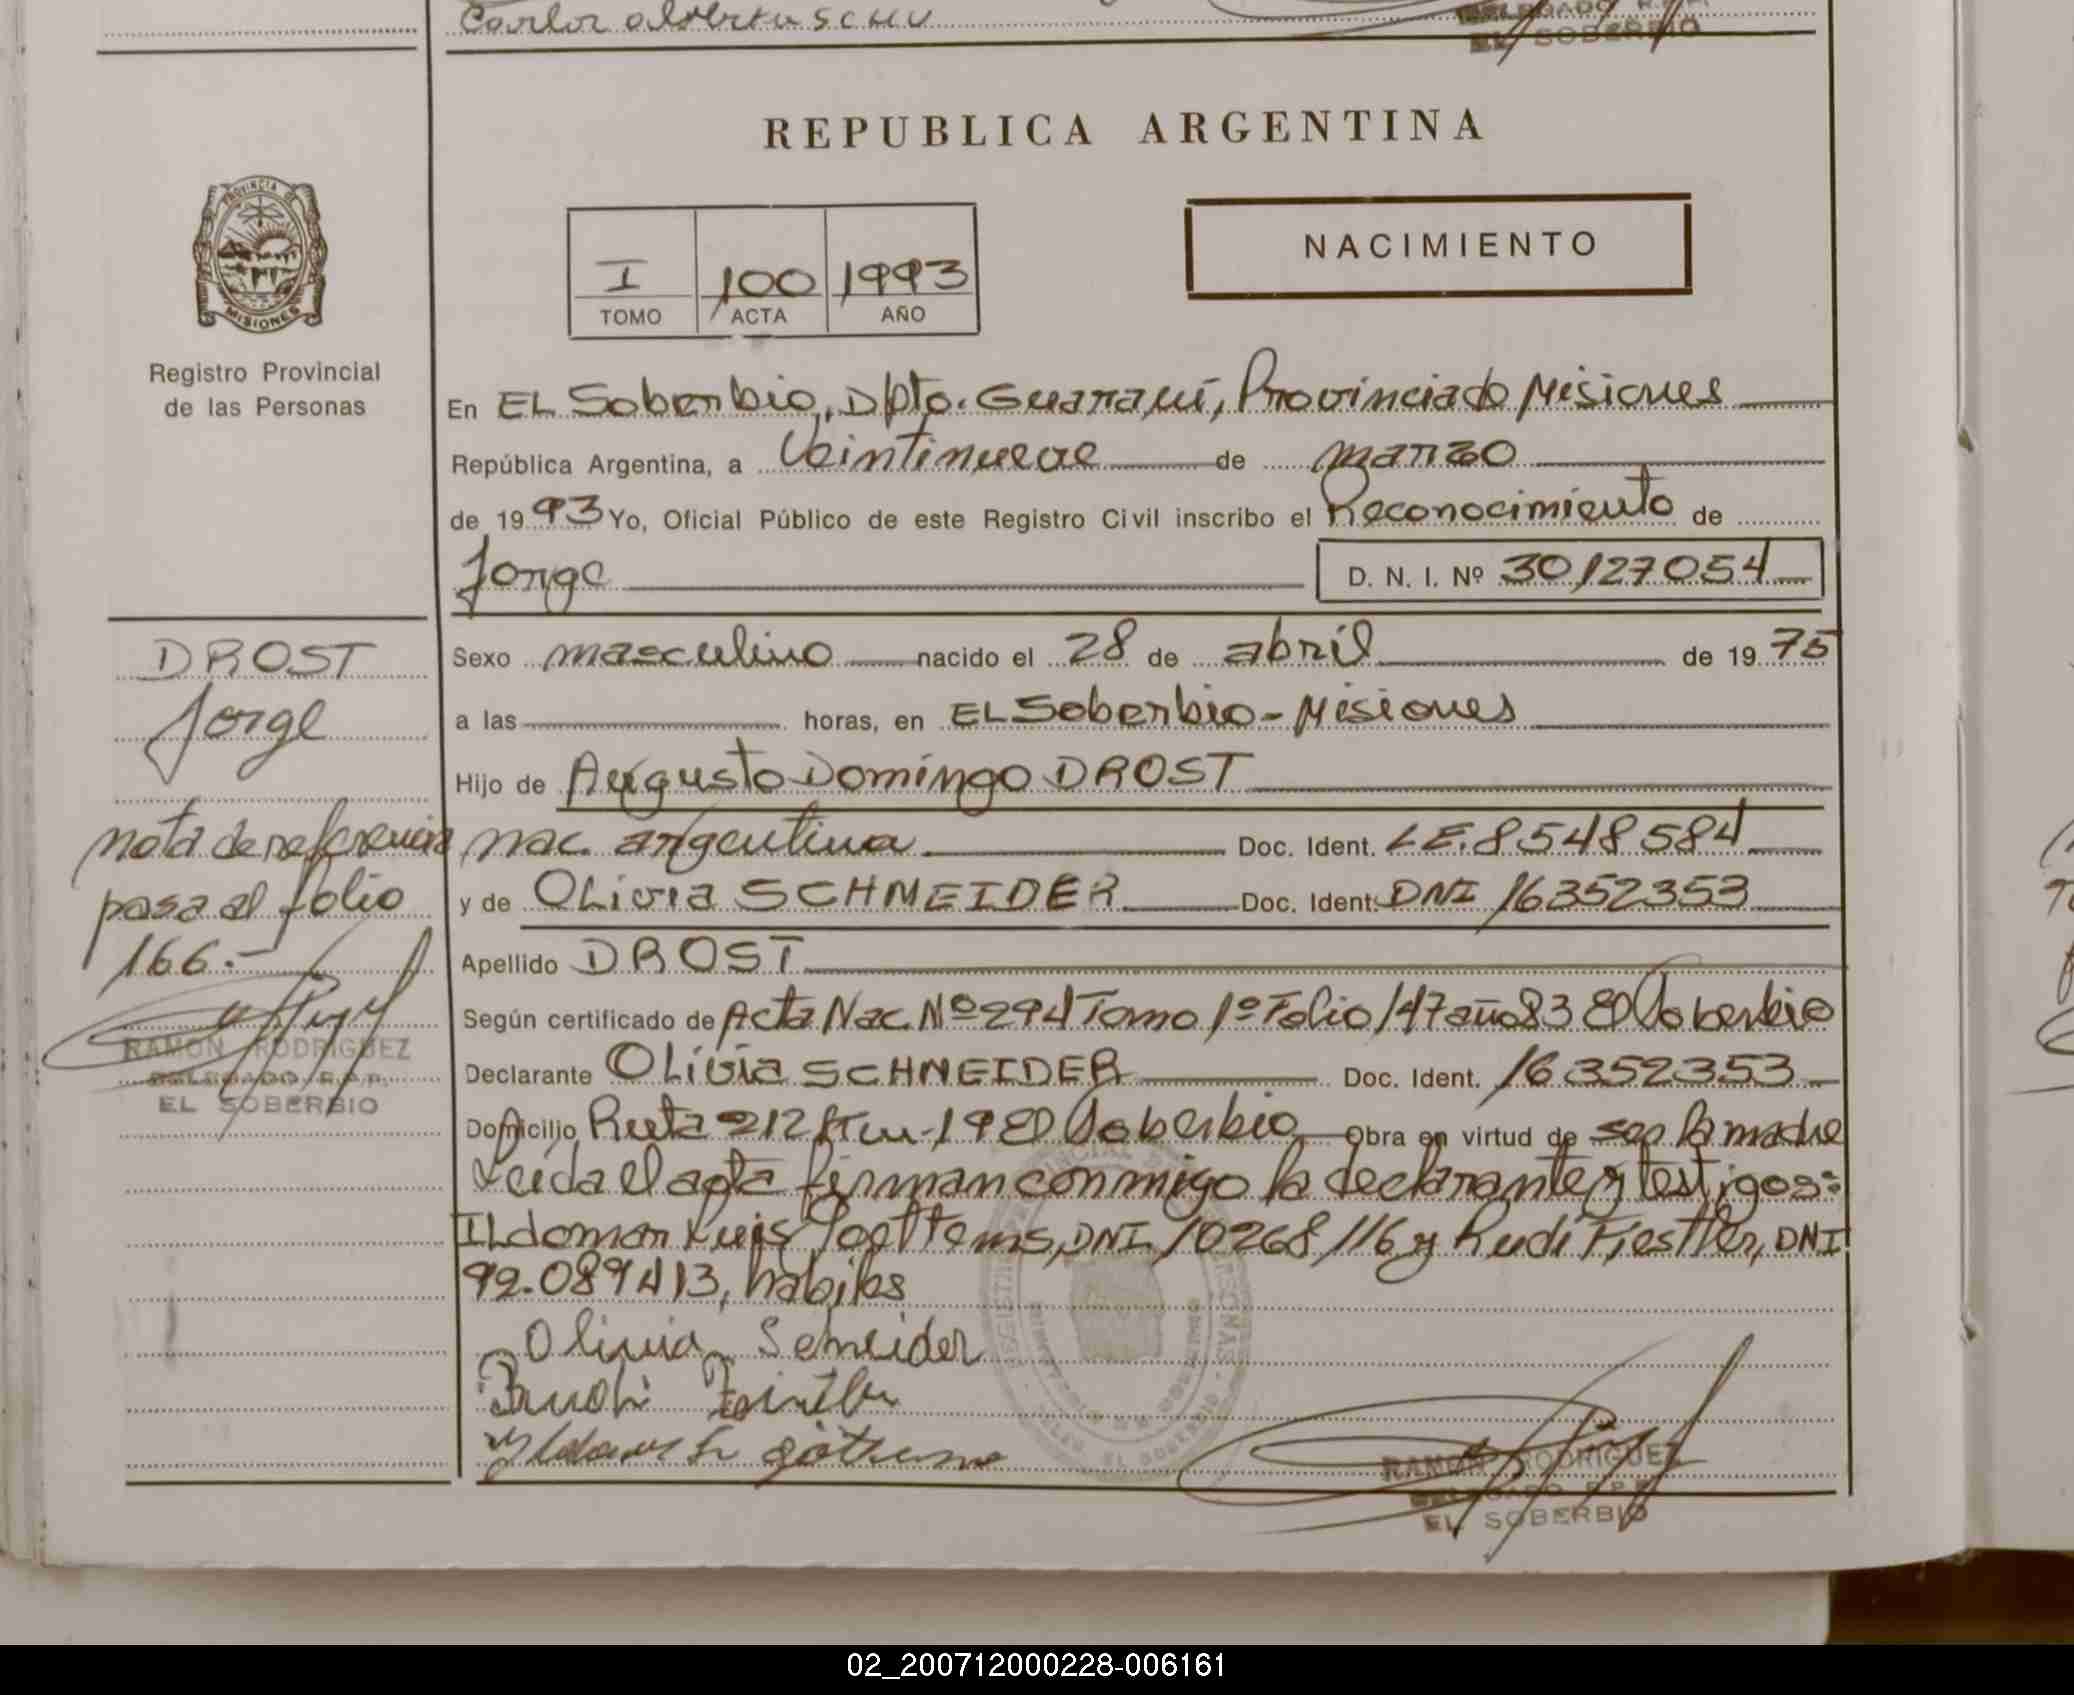 Carlos alberto SCHU
DELEGADO R.P.P.
EL SOBERBIO
REPUBLICA ARGENTINA
NACIMIENTO
I 100 1993
TOMO ACTA AÑO
PROVINCIA DE
MISIONES
Registro Provincial
de las Personas
En EL Soberbio, Dpto. Guaraní, Provincia de Misiones
República Argentina, a Veintinueve de marzo
de 1993 Yo, Oficial Público de este Registro Civil inscribo el Reconocimiento de
Jorge D. N. I. Nº 30127054
Sexo masculino nacido el 28 de abril de 1975
a las horas, en EL Soberbio - Misiones
Hijo de Augusto Domingo DROST
nac. argentina Doc. Ident. LE. 8548584
y de OLivia SCHNEIDER Doc. Ident. DNI 16352353
Apellido DROST
Según certificado de Acta Nac. Nº 294 Tomo 1º Folio 147 año 83 El Soberbio
Declarante OLivia SCHNEIDER Doc. Ident. 16352353
Domicilio Ruta 212 Km-19 El Soberbio Obra en virtud de ser la madre
Leida el acta firman conmigo la declarante y testigos:
ILdomar Luis DNI 10268116 y Rudi DNI
92.089413, habiles
Olivia Schneider
RAMON RODRIGUEZ
DELEGADO R.P.P.
EL SOBERBIO
DROST
Jorge
nota de referencia
pasa al folio
166.-
RAMON RODRIGUEZ
DELEGADO R.P.P.
EL SOBERBIO
02_200712000228-006161